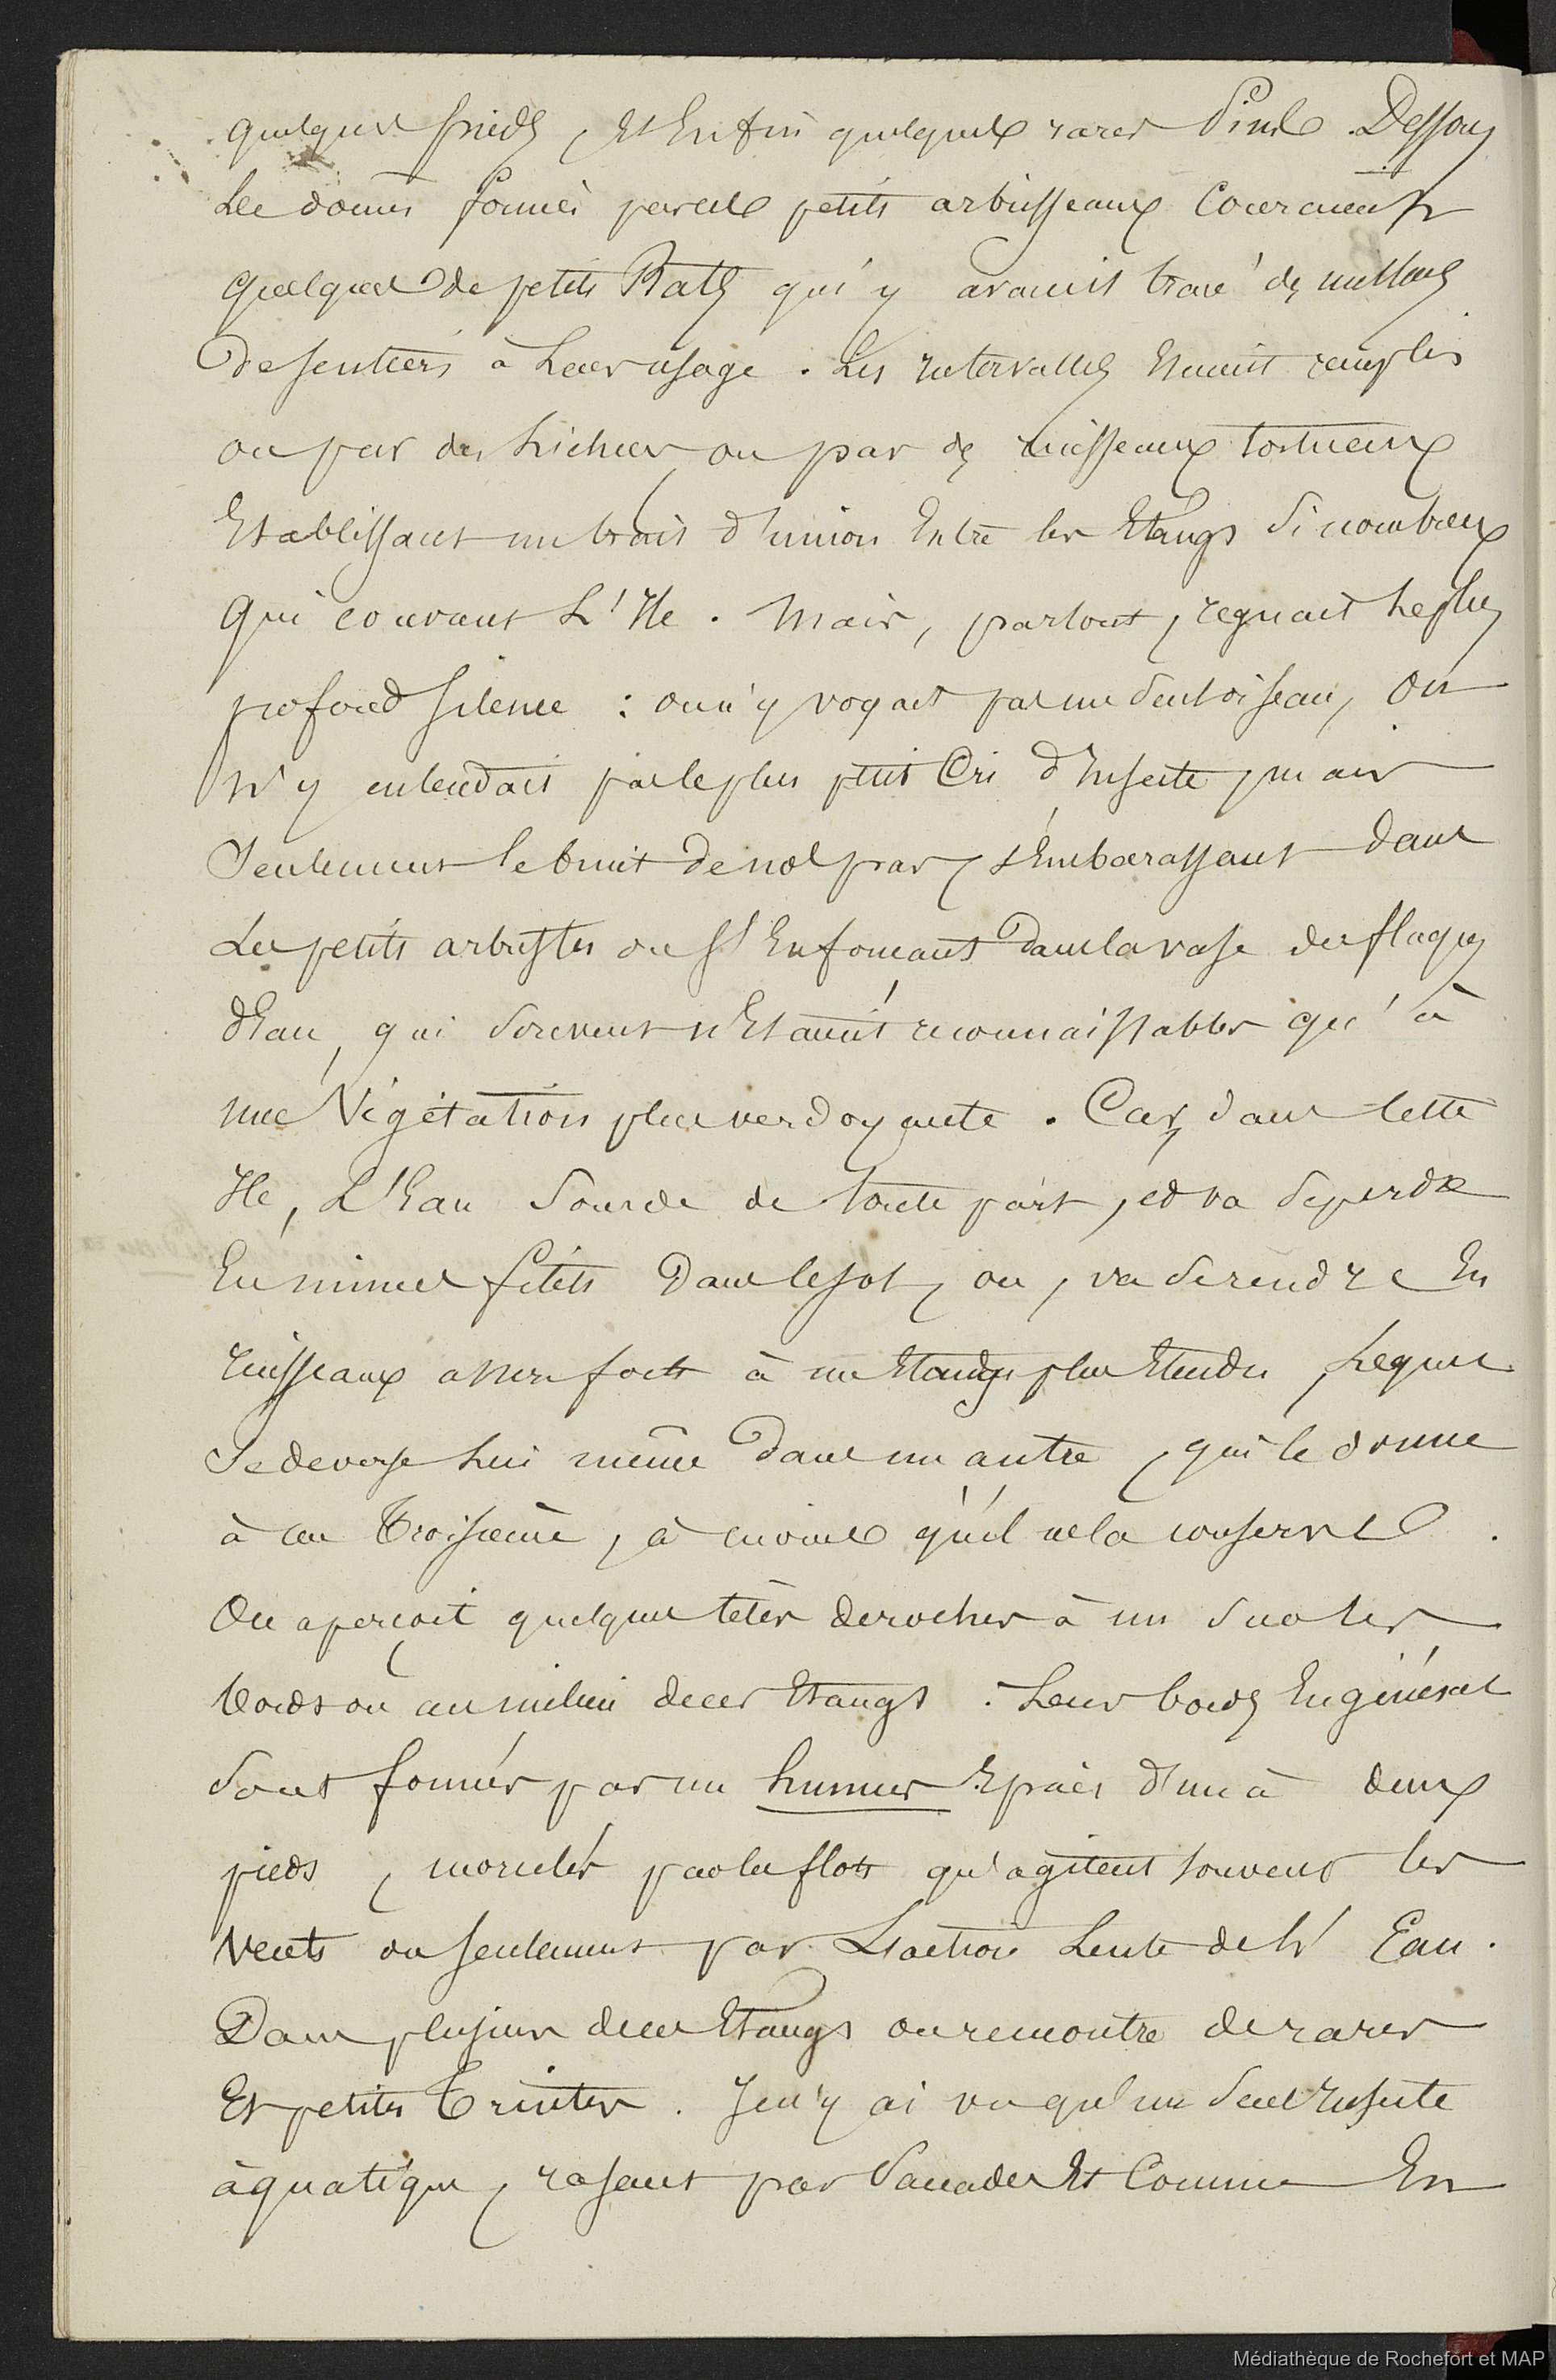 quelques pieds, Et Enfin quelques rares Pins. Dessous
Les domes formés par ces petits arbrisseaux Couraient
quelques de petits Rats qui y avaient tracé des milliers
de sentiers à Leur usage. Les Intervalles Etaient remplis
ou par des Lichens, ou par des ruisseaux tortueux
Etablissant un trait d'union Entre les Etangs si nombreux
qui couvrent L'Ile. Mais, partout, regnait le plus
profond silence : on n'y voyait pas un seul oiseau, On
n'y entendait pas le plus petit Cri d'Insecte, mais
seulement le bruit de nos pas, s'Embarassant dans
Les petits arbustes ou s'Enfonçant dans la vase des flaques
d'Eau, qui souvent n'Etaient reconnaissables qu'à
une Végétation plus verdoyante. Car, dans cette
Ile, L'Eau sourde de toute part, et va se perdre
En minces filets dans le sol, ou, va se rendre En
ruisseaux assez forts à un Etang plus Etendu, Lequel
se deverse Lui même dans un autre, qui le donne
à un Troisième, à moins qu'il ne la conserve.
On aperçoit quelques têtes de roches à nu sur les
bords ou au milieu de ces Etangs. Leurs bords En général
sont formés par un humus Epais d'un à deux
pieds, moulés par les flots qu'agitent souvent les
vents ou seulement par L'action Lente de L'Eau.
Dans plusieurs de ces Etangs on rencontre de rares
Et petites Truites. Je n'y ai vu qu'un seul Insecte
àquatique, rasant par saccades Et Comme En
Médiathèque de Rochefort et MAP